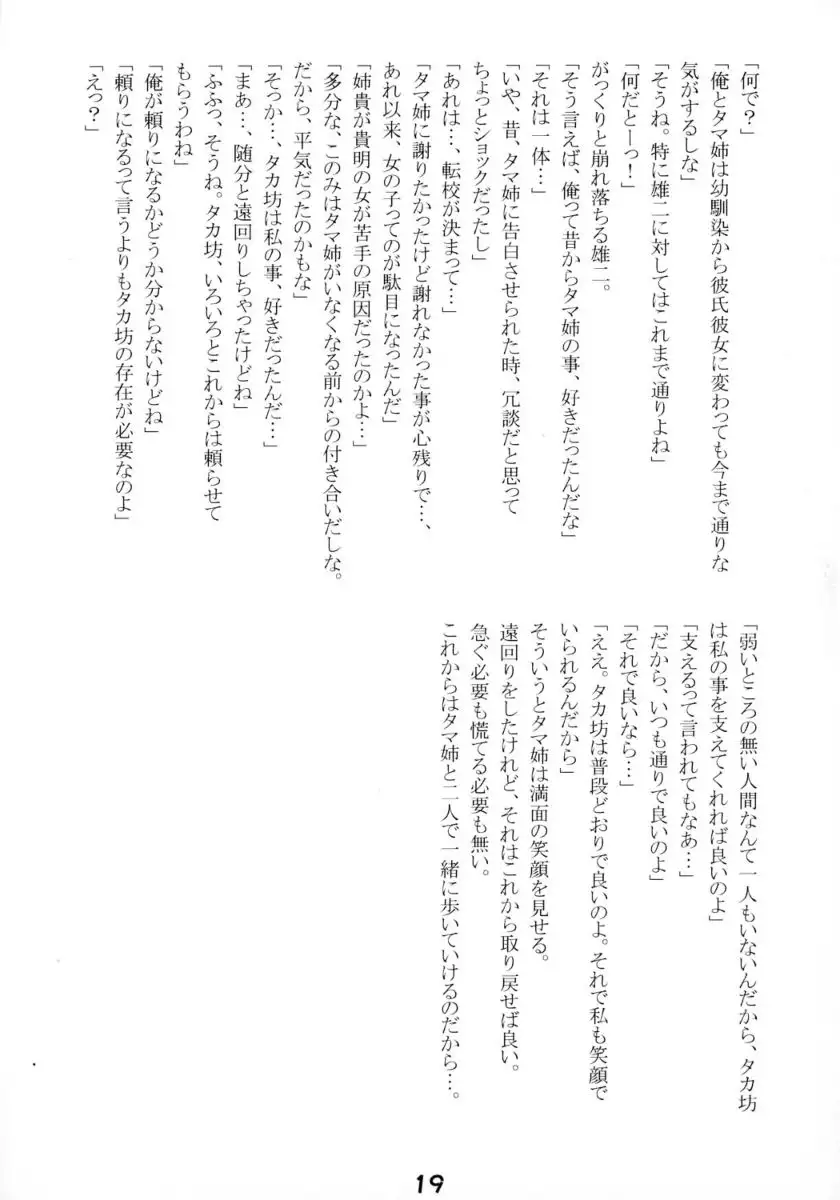 「何で？」
「俺とタマ姉は幼馴染から彼氏彼女に変わっても今まで通りな
気がするしな」
「そうね。特に雄二に対してはこれまで通りよね」
「何だとーっ！」
がっくりと崩れ落ちる雄二。
「そう言えば、俺って昔からタマ姉の事、好きだったんだな」
「それは一体…」
「いや、昔、タマ姉に告白させられた時、冗談だと思って
ちょっとショックだったし」
「あれは…、転校が決まって…」
「タマ姉に謝りたかったけど謝れなかった事が心残りで…、
あれ以来、女の子ってのが駄目になったんだ」
「姉貴が貴明の女が苦手の原因だったのかよ…」
「多分な、このみはタマ姉がいなくなる前からの付き合いだしな。
だから、平気だったのかもな」
「そっか…、タカ坊は私の事、好きだったんだ…」
「まぁ…、随分と遠回りしちゃったけどね」
「ふふっ、そうね。タカ坊、いろいろとこれからは頼らせて
もらうわね」
「俺が頼りになるかどうか分からないけどね」
「頼りになるって言うよりもタカ坊の存在が必要なのよ」
「えっ？」
「弱いところの無い人間なんて一人もいないんだから、タカ坊
は私の事を支えてくれれば良いのよ」
「支えるって言われてもなあ…」
「だから、いつも通りで良いのよ」
「それで良いなら…」
「ええ。タカ坊は普段どおりで良いのよ。それで私も笑顔で
いられるんだから」
そういうとタマ姉は満面の笑顔を見せる。
遠回りをしたけれど、それはこれから取り戻せば良い。
急ぐ必要も慌てる必要も無い。
これからはタマ姉と二人で一緒に歩いていけるのだから…。
19